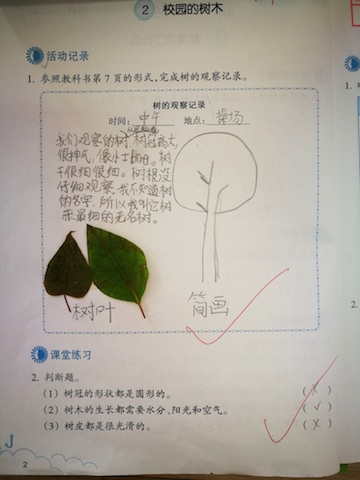 2 校园的树木
活动记录
1. 参照教科书第7页的形式,完成树的观察记录。
树的观察记录
时间: 中午 地点: 操场
我们观察的树,树冠高大,
很神气,像小士
树
干很细很细。树根没
仔细观察,我不知道树
的名字,所以我叫它树
最细的无名树。
树叶
简画
课堂练习
2. 判断题。
(1) 树冠的形状都是圆形的。 (×)
(2) 树木的生长都需要水分、阳光和空气。 (√)
(3) 树皮都是很光滑的。 (×)
J
2
1.
2.